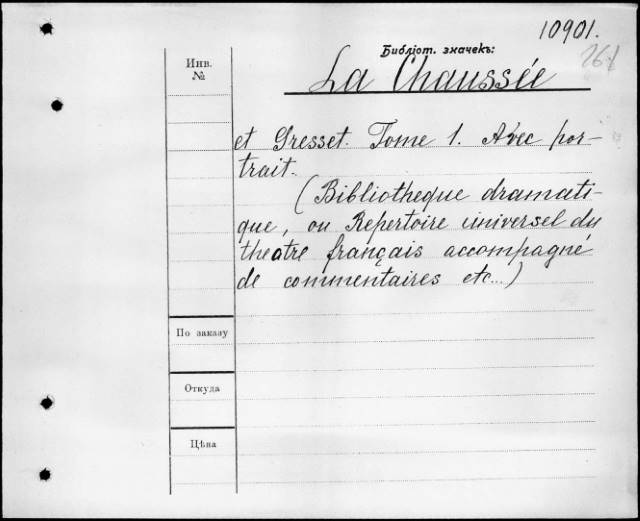 10901.
Библіот. значекъ:
Инв.
№
La Chaussée
et Gresset. Tome 1. Avec por-
trait.
(Bibliotheque dramati-
que, ou Repertoire universel du
theatre français accompagne
de commentaires etc...)
По заказу
Откуда
Цѣна